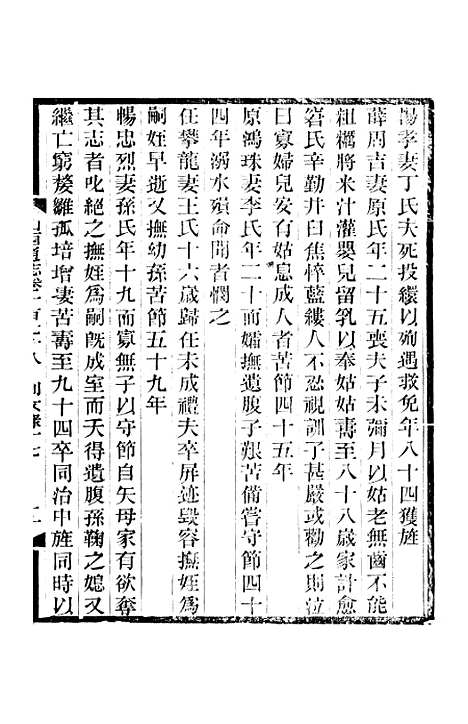 暢孝妻丁氏夫死投繯以殉遇救免年八十四獲旌
薛周吉妻原氏年二十五喪夫子未彌月以姑老無齒不能
粗糲將米汁灌嬰兒留乳以奉姑姑壽至八十八歲家計愈
窘氏辛勤井臼焦悴藍縷人不忍視訓子甚嚴或勸之則泣
曰寡婦兒安有姑息成人者苦節四十五年
原鴻珠妻李氏年二十而孀撫遺腹子艱苦備嘗守節四十
四年溺水殞命聞者憫之
任攀龍妻王氏十六歲歸任未成禮夫卒屏迹毀容撫姪為
嗣姪早逝又撫幼孫苦節五十九年
暢忠烈妻孫氏年十九而寡無子以守節自矢母家有欲奪
其志者叱絕之撫姪為嗣旣成室而夭得遺腹孫鞠之媳又
繼亡窮嫠雛孤培增凄苦壽至九十四卒同治中旌同時以
山西通志卷一百六十八 列女錄十七